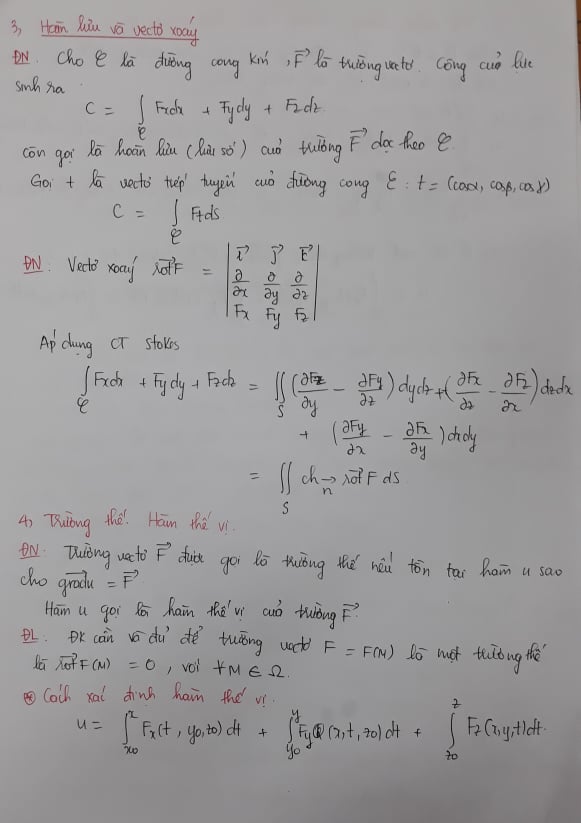 3, Hoàn lưu và vectơ xoáy
ĐN. Cho C là đường cong kín, F⃗ là trường vectơ. Công của lực
sinh ra
C = ∫_C Fxdx + Fydy + Fzdz
còn gọi là hoàn lưu (lưu số) của trường F⃗ dọc theo C.
Gọi t là vectơ tiếp tuyến của đường cong C : t = (cosα, cosβ, cosγ)
C = ∫_C Ftds
ĐN: Vectơ xoáy rot⃗F = | i⃗ j⃗ k⃗ |
| ∂/∂x ∂/∂y ∂/∂z |
| Fx Fy Fz |
Áp dụng CT Stokes
∫_C Fxdx + Fydy + Fzdz = ∬_S (∂Fz/∂y - ∂Fy/∂z) dydz + (∂Fx/∂z - ∂Fz/∂x) dzdx
+ (∂Fy/∂x - ∂Fx/∂y) dxdy
= ∬_S ch_n⃗ rot⃗F dS
4, Trường thế. Hàm thế vị.
ĐN: Trường vectơ F⃗ được gọi là trường thế nếu tồn tại hàm u sao
cho grad⃗u = F⃗
Hàm u gọi là hàm thế vị của trường F⃗.
ĐL: ĐK cần và đủ để trường vectơ F = F(M) là một trường thế
là rot⃗F(M) = 0, với ∀M ∈ Ω.
⊛ Cách xác định hàm thế vị.
u = ∫_x0^x Fx(t, y0, z0) dt + ∫_y0^y Fy(x, t, z0) dt + ∫_z0^z Fz(x, y, t) dt.